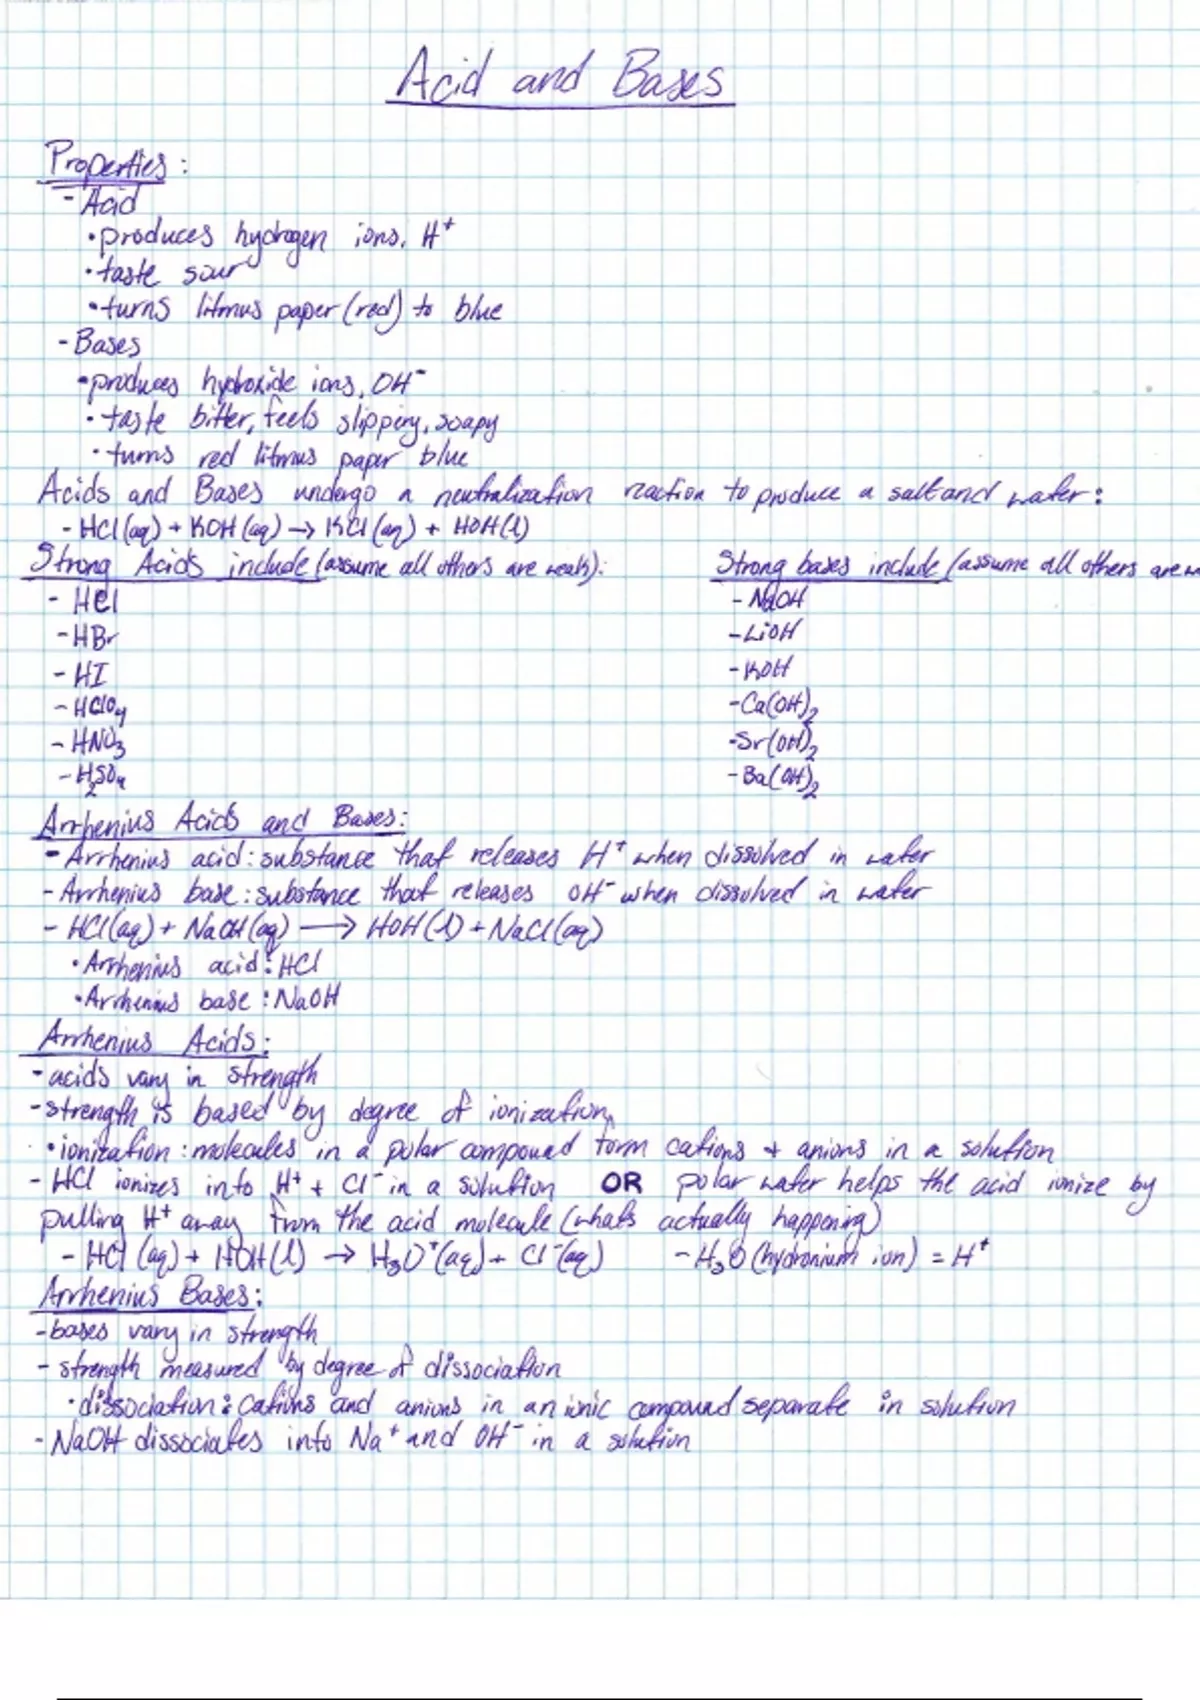 Acid and Bases
Properties:
- Acid
• produces hydrogen ions, H⁺
• taste sour
• turns litmus paper (red) to blue
- Bases
• produces hydroxide ions, OH⁻
• taste bitter, feels slippery, soapy
• turns red litmus paper blue
Acids and Bases undergo a neutralization reaction to produce a salt and water:
- HCl (aq) + KOH (aq) → KCl (aq) + HOH (l)
Strong Acids include (assume all others are weak):
- HCl
- HBr
- HI
- HClO₄
- HNO₃
- H₂SO₄
Strong bases include (assume all others are
- NaOH
- LiOH
- KOH
- Ca(OH)₂
- Sr(OH)₂
- Ba(OH)₂
Arrhenius Acids and Bases:
- Arrhenius acid: substance that releases H⁺ when dissolved in water
- Arrhenius base: substance that releases OH⁻ when dissolved in water
- HCl (aq) + NaOH (aq) → HOH (l) + NaCl (aq)
• Arrhenius acid: HCl
• Arrhenius base: NaOH
Arrhenius Acids:
- acids vary in strength
- strength is based by degree of ionization
• ionization: molecules in a polar compound form cations + anions in a solution
- HCl ionizes into H⁺ + Cl⁻ in a solution OR polar water helps the acid ionize by
pulling H⁺ away from the acid molecule (whats actually happening)
- HCl (aq) + HOH (l) → H₃O⁺ (aq) + Cl⁻ (aq) - H₃O (hydronium ion) = H⁺
Arrhenius Bases:
- bases vary in strength
- strength measured by degree of dissociation
• dissociation: cations and anions in an ionic compound separate in solution
- NaOH dissociates into Na⁺ and OH⁻ in a solution